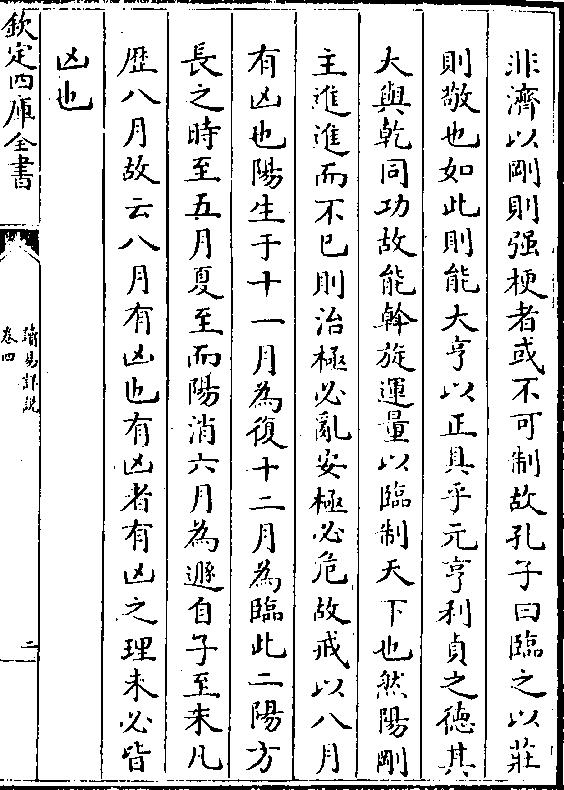 非濟以剛則强梗者或不可制故孔子曰臨之以莊
則敬也如此則能大亨以正具乎元亨利貞之德其
大與乾同功故能斡旋運量以臨制天下也然陽剛
主進進而不已則治極必亂安極必危故戒以八月
有凶也陽生于十一月為復十二月為臨此二陽方
長之時至五月夏至而陽消六月為遯自子至未凡
歴八月故云八月有凶也有凶者有凶之理未必皆
凶也
欽定四庫全書
讀易詳說
卷四
二